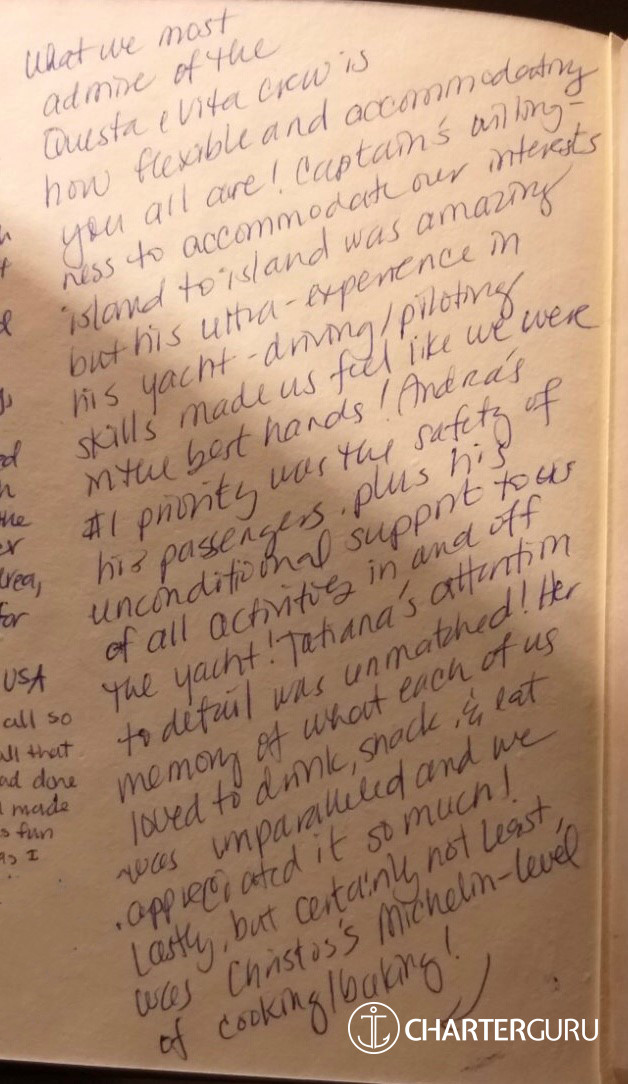 What we most
admire of the
Questa e Vita crew is
how flexible and accommodating
you all are! Captain's willing-
ness to accommodate our interests
island to island was amazing
but his ultra-experience in
his yacht-driving/piloting
skills made us feel like we were
in the best hands! Andrea's
#1 priority was the safety of
his passengers, plus his
unconditional support to us
of all activities in and off
the yacht! Tatiana's attention
to detail was unmatched! Her
memory of what each of us
loved to drink, snack, & eat
was unparalleled and we
appreciated it so much!
Lastly, but certainly not least,
was Christos's Michelin-level
of cooking/baking!
the
area,
for
USA
call so
all that
made
fun
I
CHARTERGURU